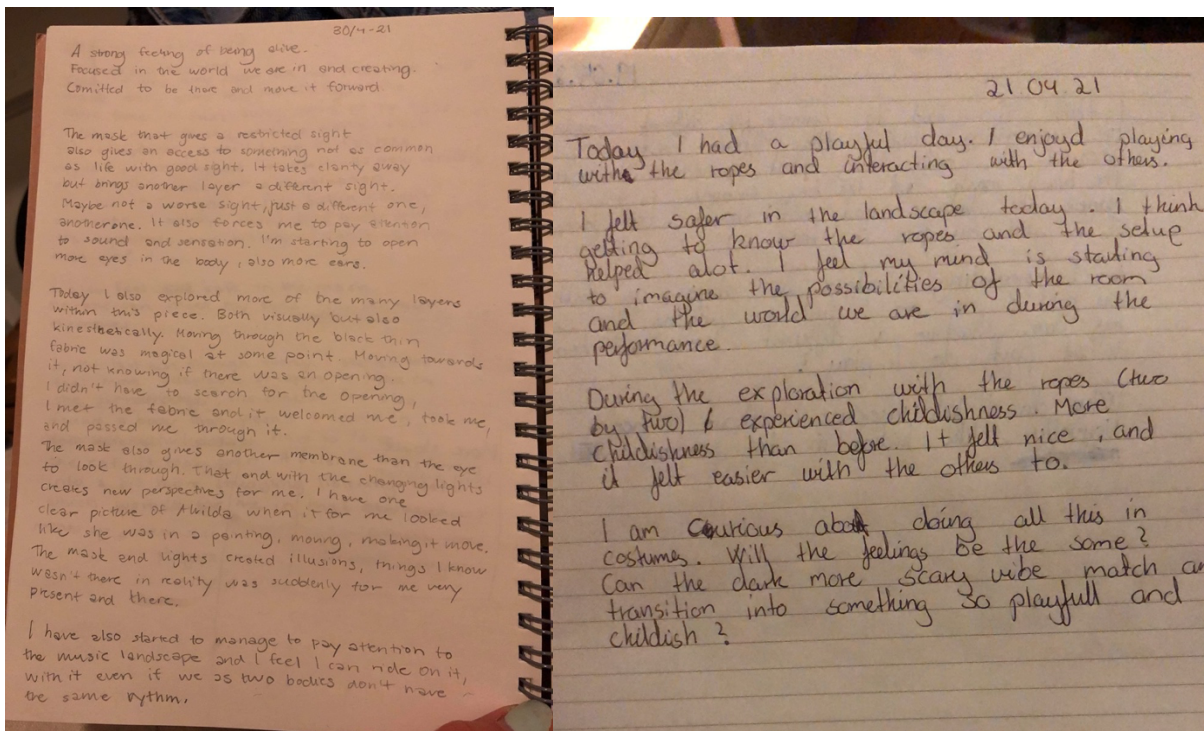 30/4-21
A strong feeling of being alive.
Focused in the world we are in and creating.
Comitted to be there and move it forward
The mask that gives a restricted sight
also gives an access to something not as common
as life with good sight. It takes clarity away
but brings another layer a different sight.
Maybe not a worse sight, just a different one,
anotherone. It also forces me to pay attention
to sound and sensation. I'm starting to open
more eyes in the body, also more ears.
Today I also explored more of the many layers
within this piece. Both visually but also
kinesthetically. Moving through the black thin
fabric was magical at some point. Moving towards
it, not knowing if there was an opening.
I didn't have to search for the opening,
I met the fabric and it welcomed me, took me,
and passed me through it.
The mask also gives another membrane than the eye
to look through. That and with the changing lights
creates new perspectives for me. I have one
clear picture of Alvilda when it for me looked
like she was in a painting, moving, making it move.
The mask and lights created illusions, things I know
wasn't there in reality was suddenly for me very
present and there.
I have also started to manage to pay attention to
the music landscape and I feel I can ride on it,
with it even if we as two bodies don't have
the same rythm.
21 04 21
Today I had a playful day. I enjoyd playing
with the ropes and interacting with the others.
I felt safer in the landscape today. I think
getting to know the ropes and the setup
helped alot. I feel my mind is starting
to imagine the possibilities of the room
and the world we are in during the
performance.
During the exploration with the ropes (two
by two) I experienced childishness. More
childishness than before. It felt nice, and
it felt easier with the others to.
I am curious about doing all this in
costumes. Will the feelings be the same?
Can the dark more scary vibe match
transition into something so playfull and
childish?